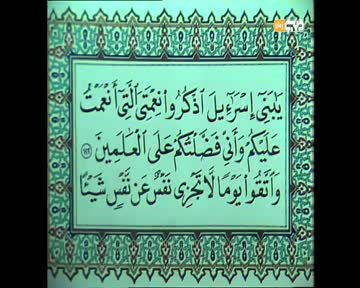 يَٰبَنِىٓ إِسْرَٰٓءِيلَ ٱذْكُرُوا۟ نِعْمَتِىَ ٱلَّتِىٓ أَنْعَمْتُ
عَلَيْكُمْ وَأَنِّى فَضَّلْتُكُمْ عَلَى ٱلْعَٰلَمِينَ ١٢٢
وَٱتَّقُوا۟ يَوْمًا لَّا تَجْزِى نَفْسٌ عَن نَّفْسٍ شَيْـًٔا